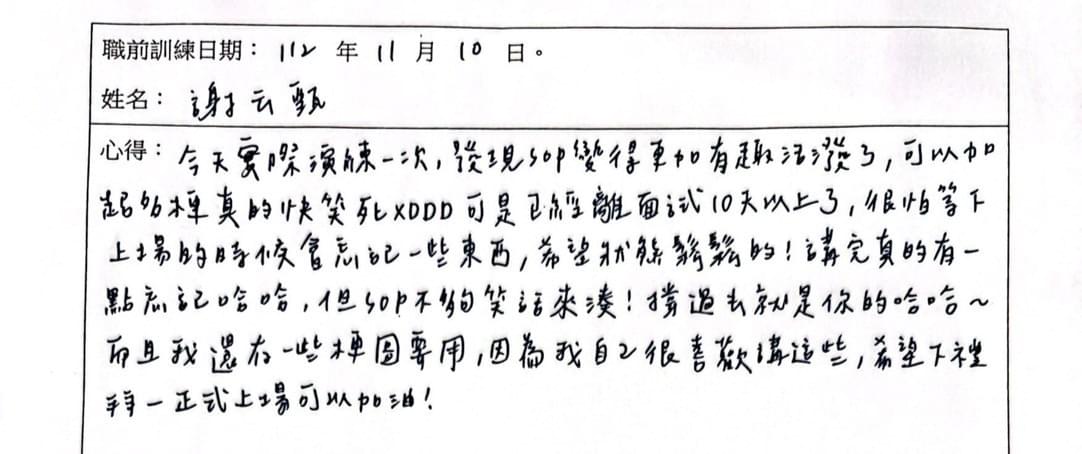 職前訓練日期：112 年 11 月 10 日。
姓名：謝云甄
心得：今天實際演練一次，發現SOP變得更加有趣活潑了，可以加
起多梗真的快笑死XDDD可是已經離面試10天以上了，很怕等下
上場的時候會忘記一些東西，希望狀態鬆鬆的！講完真的有一
點忘記哈哈，但SOP不夠笑話來湊！撐過去就是你的哈哈～
而且我還有一些梗圖要用，因為我自己很喜歡講這些，希望下禮
拜一正式上場可以加油！